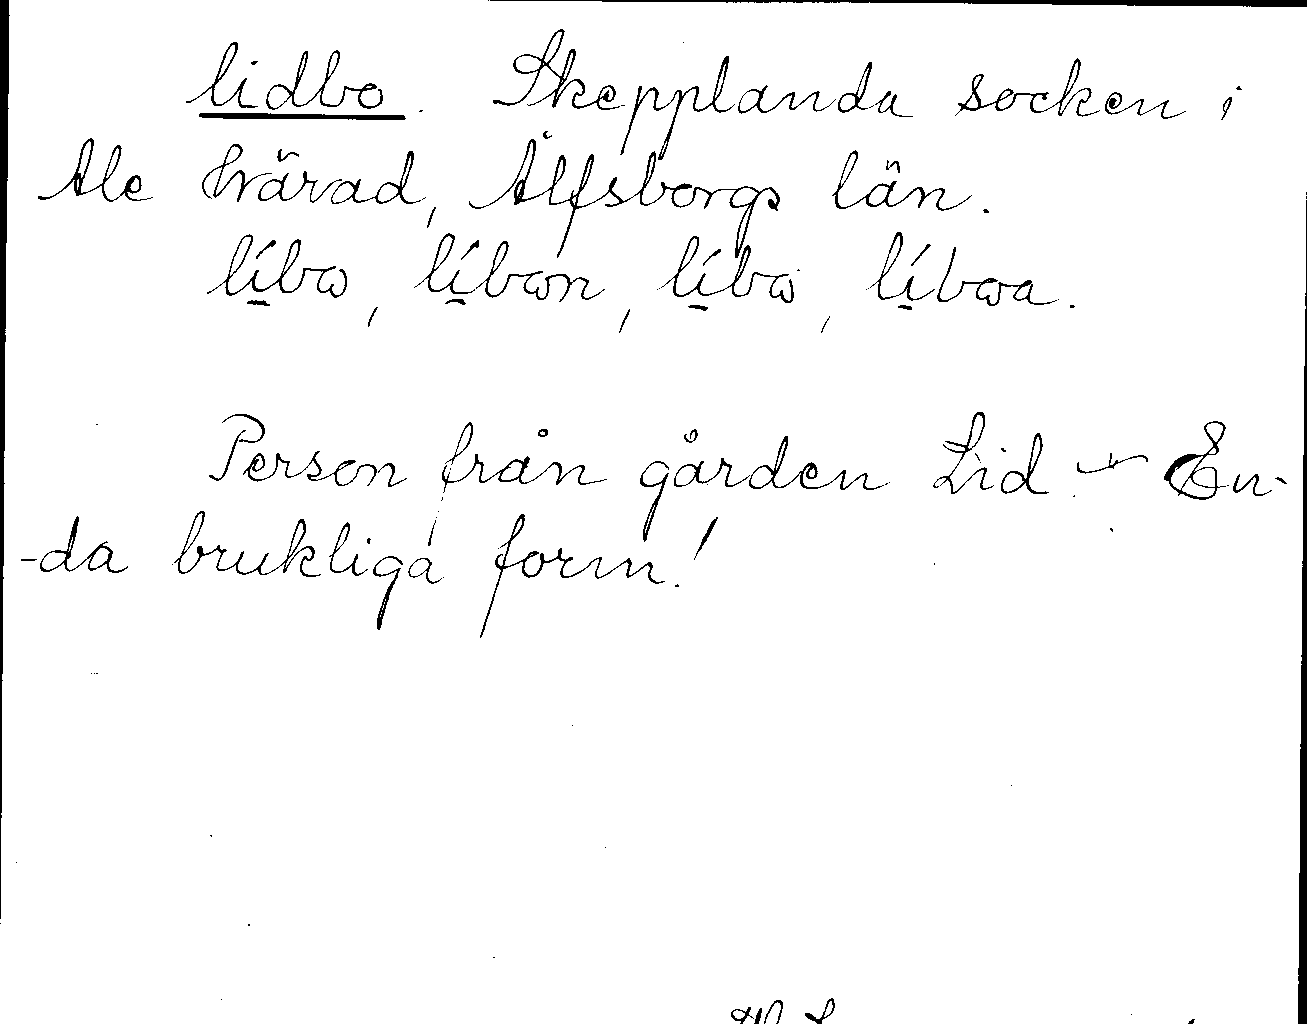 lidbo. Skepplanda socken i
Ale härad, Älfsborgs län.
lí̱bω, lí̱bωn, lí̱bω, lí̱bωa.
Person från gården Lid. — En-
-da brukliga form!